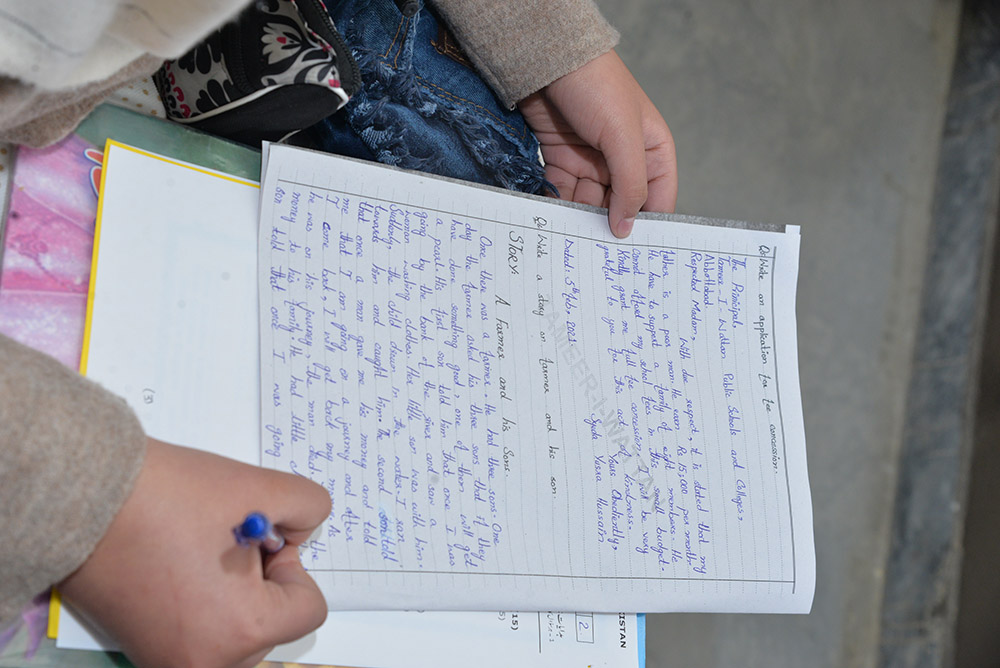 Q: Write an application for fee concession.
The Principal,
Tameer-I-Wattan Public Schools and Colleges,
Abbottabad.
Respected Madam,
With due respect, it is stated that my
father is a poor man. He earn Rs 15,000 per month
He have to support a family of eight members. He
cannot afford my school fees in this small budget.
Kindly grant me full fee concession. I will be very
grateful to you for this act of kindness.
Yours Obediently,
Syeda Yusra Hussain.
Dated: 5th Feb, 2021.
Q: Write a story on farmer and his son.
STORY
A Farmer and his Sons.
Once there was a farmer. He had three sons. One
day the farmer asked his three sons that if they
have done something good, one of them will get
a pearl. His first son told him that once I was
going by the bank of the river and saw a
woman washing clothes. Her little son was with him.
Suddenly, the child drown in the water. I ran
towards him and caught him. The second son told
that once a man gave me his money and told
me that I am going on a journey and after
I come back, I will get back my money. As
he was on his journey, the man died. the
money to his family. He had little
son told that once I was going
(3)
(15)
2
KISTAN